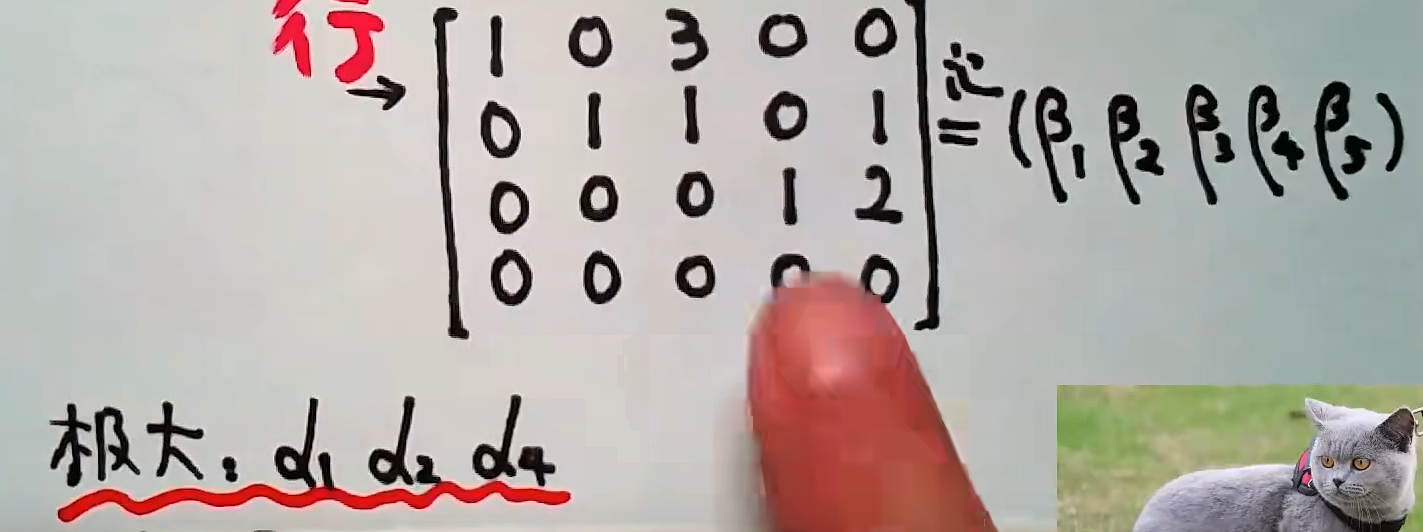 行
→ [1 0 3 0 0
0 1 1 0 1
0 0 0 1 2
0 0 0 0 0] 记= (β1 β2 β3 β4 β5)
极大: α1 α2 α4